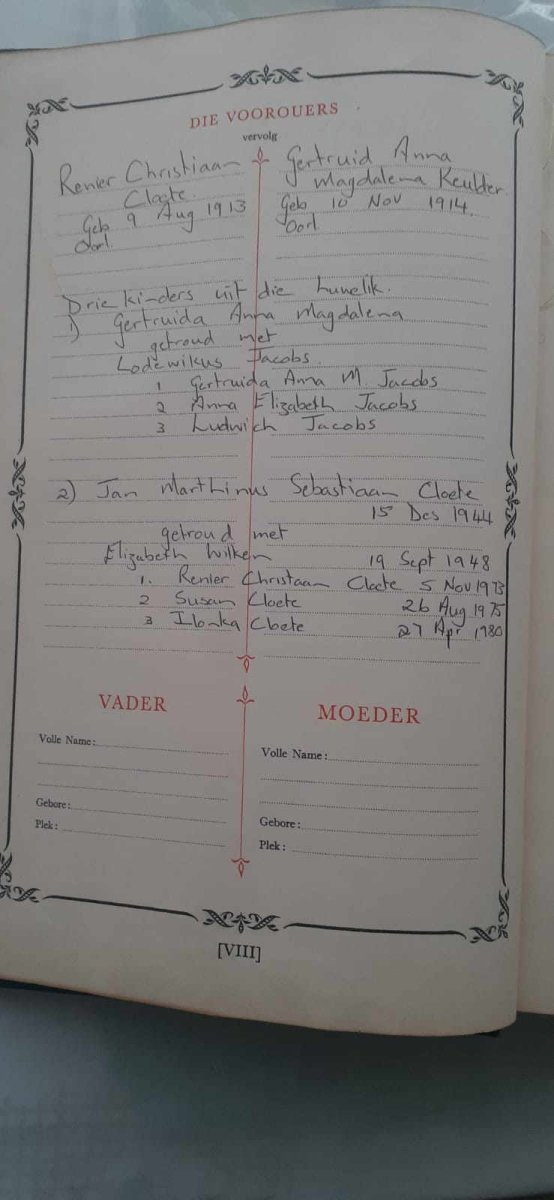 DIE VOOROUERS
vervolg
Renier Christiaan
Cloete
Geb 9 Aug 1913
Oorl.
Gertruid Anna
Magdalena Keulder.
Geb 10 Nov 1914.
Oorl
Drie kinders uit die huwelik.
1) Gertruida Anna Magdalena
getroud met
Lodewikus Jacobs.
1 Gertruida Anna M. Jacobs
2 Anna Elizabeth Jacobs
3 Ludwich Jacobs
2) Jan Marthinus Sebastiaan Cloete
15 Des 1944
getroud met
Elizabeth Wilken 19 Sept 1948
1. Renier Christaan Cloete 5 Nov 1973
2 Susan Cloete 26 Aug 1975
3 Ilonka Cloete 27 Apr 1980
VADER
Volle Name:
Gebore:
Plek:
MOEDER
Volle Name:
Gebore:
Plek:
[VIII]